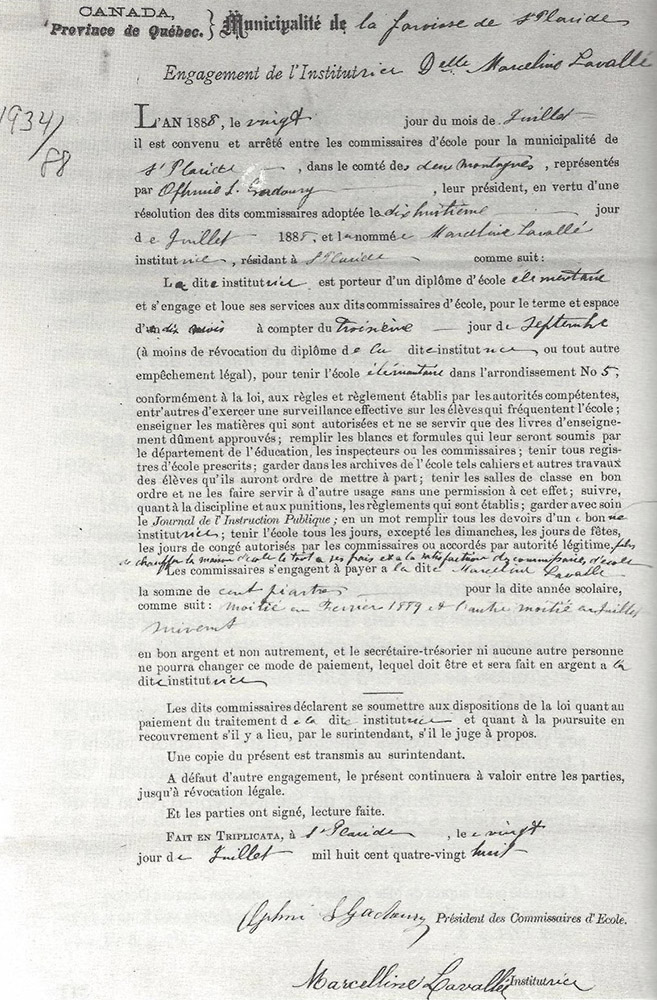 CANADA,
Province de Québec. } Municipalité de la Paroisse de St Placide
Engagement de l'Institutrice Delle Marceline Lavallé
1934/88
L'AN 1888, le vingt jour du mois de Juillet
il est convenu et arrêté entre les commissaires d'école pour la municipalité de
St Placide, dans le comté des deux Montagnes, représentés
par , leur président, en vertu d'une
résolution des dits commissaires adoptée le dixhuitième jour
de Juillet 1888, et la nommée Marceline Lavallé
institutrice, résidant à St Placide comme suit:
La dite institutrice est porteur d'un diplôme d'école élémentaire
et s'engage et loue ses services aux dits commissaires d'école, pour le terme et espace
d' dix mois à compter du Troisième jour de Septembre
(à moins de révocation du diplôme de la dite institutrice ou tout autre
empêchement légal), pour tenir l'école élémentaire dans l'arrondissement No 5,
conformément à la loi, aux règles et règlement établis par les autorités compétentes,
entr'autres d'exercer une surveillance effective sur les élèves qui fréquentent l'école;
enseigner les matières qui sont autorisées et ne se servir que des livres d'enseigne-
ment dûment approuvés; remplir les blancs et formules qui leur seront soumis par
le département de l'éducation, les inspecteurs ou les commissaires; tenir tous regis-
tres d'école prescrits; garder dans les archives de l'école tels cahiers et autres travaux
des élèves qu'ils auront ordre de mettre à part; tenir les salles de classe en bon
ordre et ne les faire servir à d'autre usage sans une permission à cet effet; suivre,
quant à la discipline et aux punitions, les règlements qui sont établis; garder avec soin
le Journal de l'Instruction Publique; en un mot remplir tous les devoirs d'une bonne
institutrice; tenir l'école tous les jours, excepté les dimanches, les jours de fêtes,
les jours de congé autorisés par les commissaires ou accordés par autorité légitime, plus
de chauffer la maison d'école le tout à ses frais et à la satisfaction des commissaires d'école
Les commissaires s'engagent à payer a la dite Marceline Lavallé
la somme de cent piastres pour la dite année scolaire,
comme suit: moitié en Fevrier 1889 et l'autre moitié en Juillet
suivant
en bon argent et non autrement, et le secrétaire-trésorier ni aucune autre personne
ne pourra changer ce mode de paiement, lequel doit être et sera fait en argent a la
dite institutrice
Les dits commissaires déclarent se soumettre aux dispositions de la loi quant au
paiement du traitement de la dite institutrice et quant à la poursuite en
recouvrement s'il y a lieu, par le surintendant, s'il le juge à propos.
Une copie du présent est transmis au surintendant.
A défaut d'autre engagement, le présent continuera à valoir entre les parties,
jusqu'à révocation légale.
Et les parties ont signé, lecture faite.
FAIT EN TRIPLICATA, à St Placide, le vingt
jour de Juillet mil huit cent quatre-vingt huit
Président des Commissaires d'Ecole.
Marcelline Lavallé Institutrice